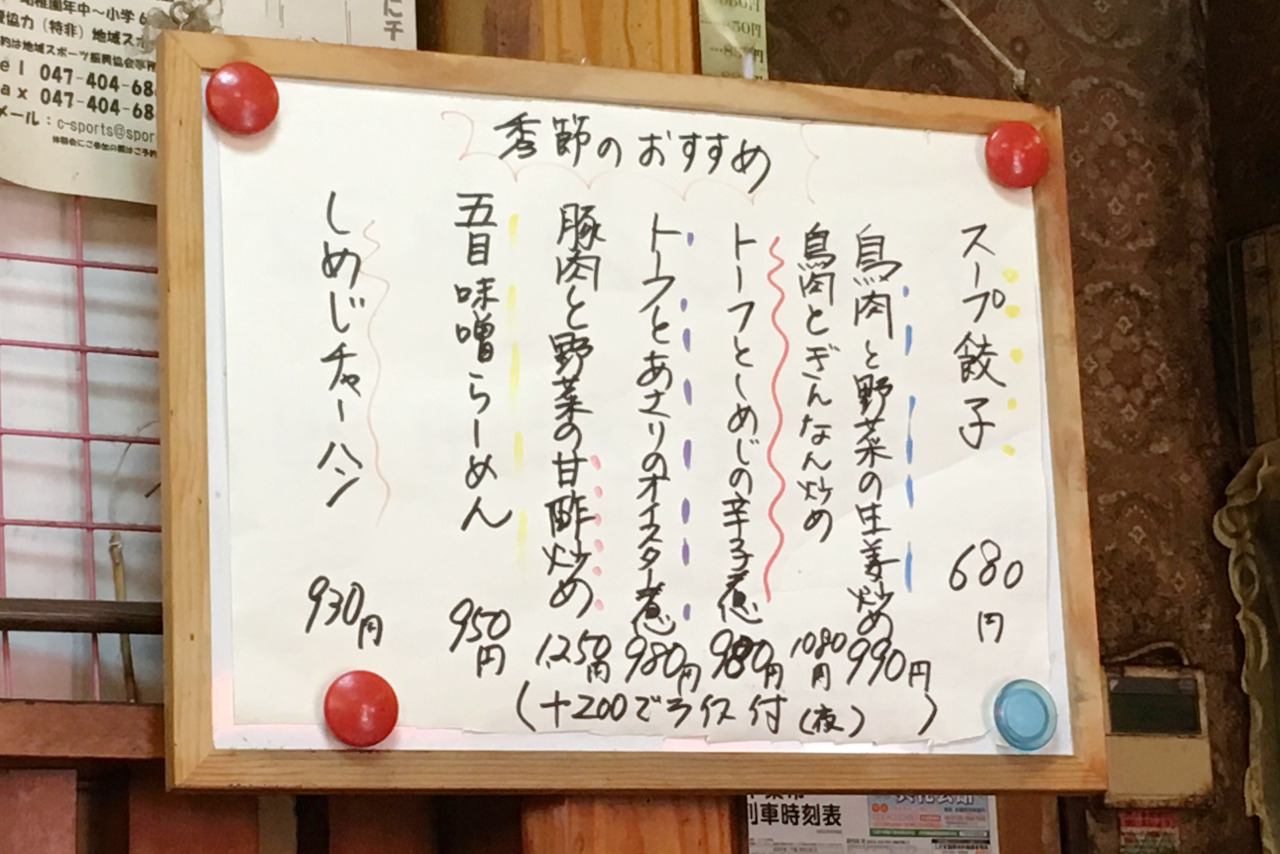 季節のおすすめ
スープ餃子 680円
鳥肉と野菜の生姜炒め 990円
鳥肉とぎんなん炒め 1080円
トーフとしめじの辛子煮 980円
トーフとあさりのオイスター煮 980円
豚肉と野菜の甘酢炒め 1,250円
五目味噌らーめん 950円
しめじチャーハン 930円
(+200でライス付(夜))
幼稚園年中〜小学6
援協力(特非)地域スポ
約は地域スポーツ振興協会事務
el 047-404-68
ax 047-404-68
メール:c-sports@spor
体験会にご参加の際はご予約
にチ
850円
列車時刻表